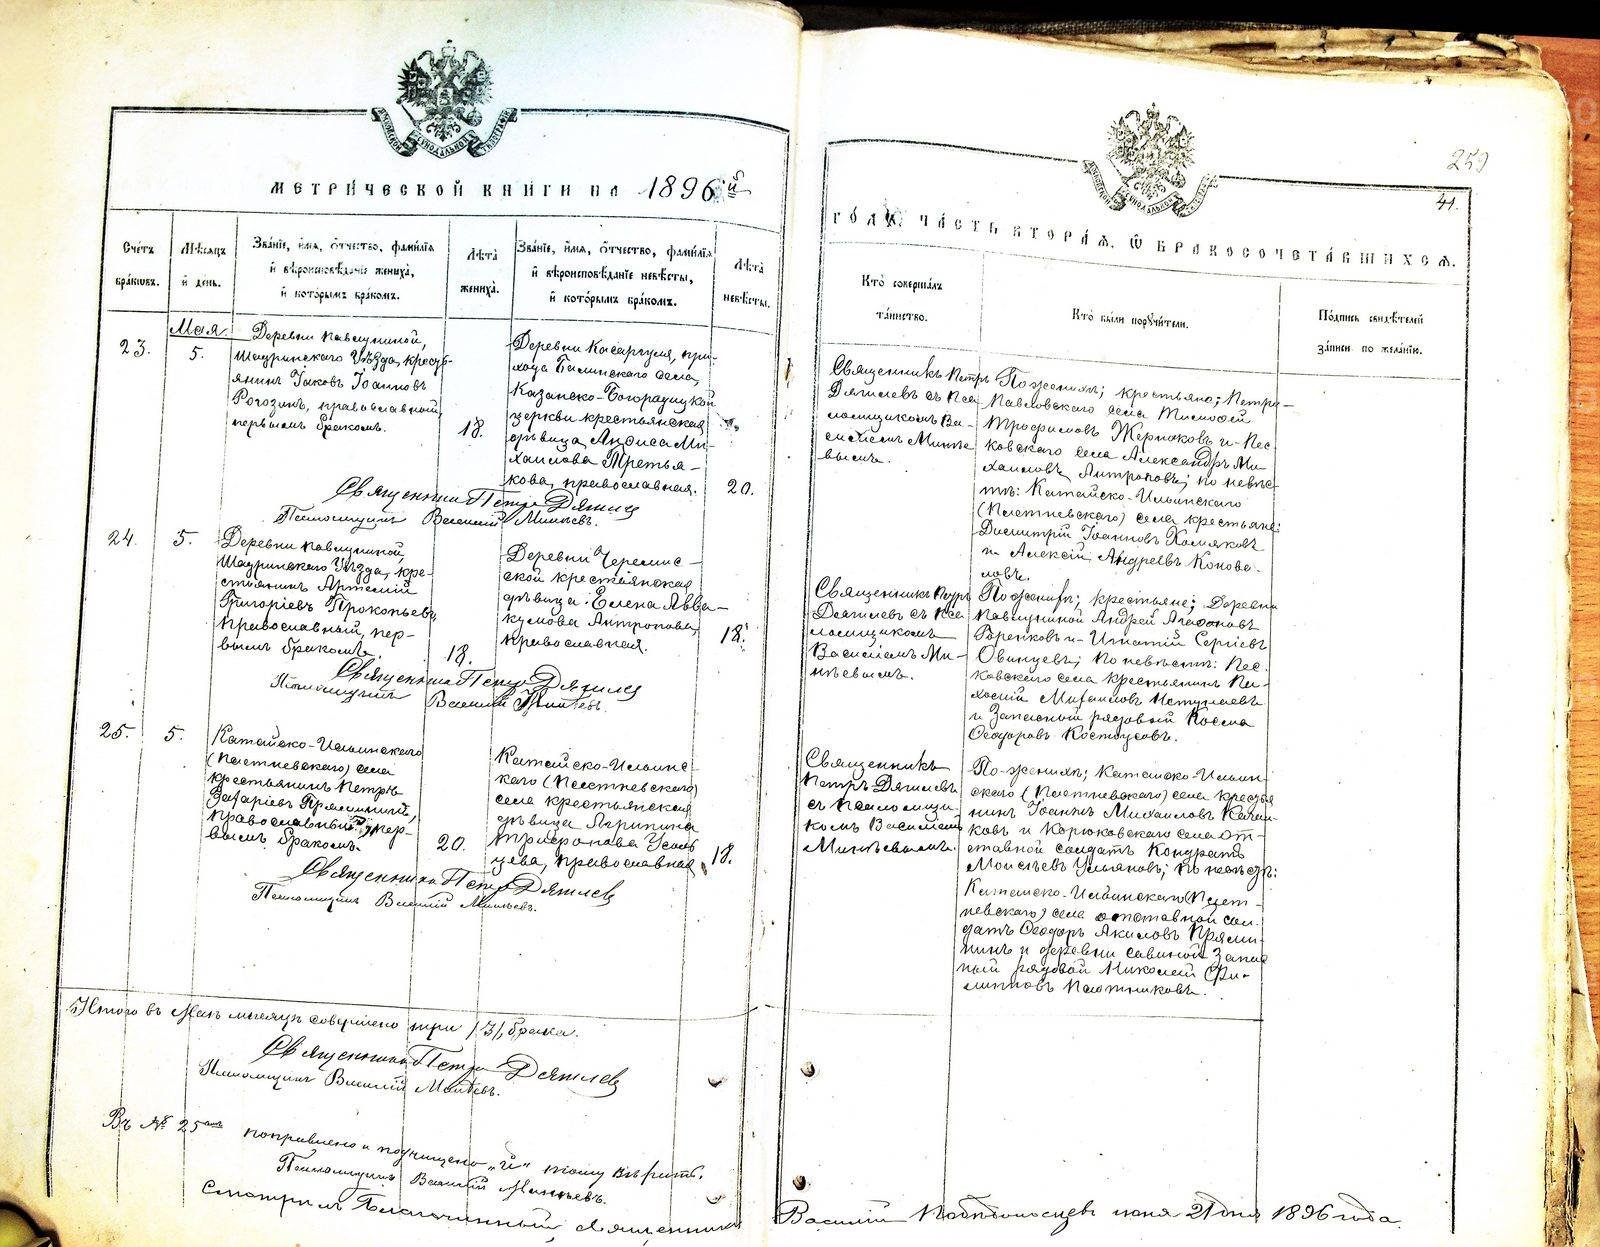 МОСКОВСКОЙ СѴНОДАЛЬНОЙ ТИПОГРАФІИ
МЕТРИЧЕСКОЙ КНИГИ НА 1896й
Счетъ браковъ.
Мѣсяцъ и день.
Званіе, имя, отчество, фамилія и вѣроисповѣданіе жениха, и которымъ бракомъ.
Лѣта жениха.
Званіе, имя, отчество, фамилія и вѣроисповѣданіе невѣсты, и которымъ бракомъ.
Лѣта невѣсты.
Мая
23.
5.
Деревни Павлушиной,
Шадринскаго Уѣзда, кресть-
янинъ Іаковъ Іоанновъ
Рогозинъ, православный,
первымъ бракомъ.
18.
Деревни Касаргуля, при-
хода села,
Казанско-Богородицкой
церкви крестьянская
дѣвица Анфиса Ми-
хаилова Третья-
кова, православная.
20.
Священникъ Петръ Дягилев
Псаломщикъ Василій Минѣевъ.
24.
5.
Деревни Павлушиной,
Шадринскаго Уѣзда, кре-
стьянинъ Артемій
Григоріевъ Прокопьевъ,
православный, пер-
вымъ бракомъ.
18.
Деревни Черемис-
ской крестьянская
дѣвица Елена Авва-
кумова Антропова,
православная.
18.
Священникъ Петръ Дягилев
Псаломщикъ Василій Минѣевъ.
25.
5.
Катайско-Ильинскаго
(Плетневскаго) села
крестьянинъ Петръ
Захаріевъ
православный, пер-
вымъ бракомъ.
20.
Катайско-Ильинс-
каго (Плетневскаго)
села крестьянская
дѣвица Агрипина
Трифонова Усоль
цева, православная
18.
Священникъ Петръ Дягилев
Псаломщикъ Василій Минѣевъ.
Итого въ Маѣ мѣсяцѣ совершено три /3/ брака.
Священникъ Петръ Дягилев
Псаломщикъ Василій Минѣевъ.
Въ № 25мъ поправлено и подчищено „й" тому вѣрить.
Псаломщикъ Василій Минѣевъ.
Смотрѣлъ Благочинный, Священникъ
МОСКОВСКОЙ СѴНОДАЛЬНОЙ ТИПОГРАФІИ
259
41.
ГОДЪ, ЧАСТЬ ВТОРАЯ, Ѡ БРАКОСОЧЕТАВШИХСЯ.
Кто совершалъ таинство.
Кто были поручители.
Подпись свидѣтелей записи по желанію.
Священникъ Петръ
Дягилевъ съ Пса-
ломщикомъ Ва-
силіемъ Минѣе
вымъ.
По женихѣ; крестьяне; Петро-
Павловскаго села Тимофей
Трофимовъ Жерноковъ и Пес-
ковскаго села Александръ Ми-
хаиловъ Антроповъ; по невѣс-
тѣ: Катайско-Ильинскаго
(Плетневскаго) села крестьяне:
Димитрій Іоанновъ Хомяковъ
и Алексій Андреевъ Конова-
ловъ.
Священникъ Петръ
Дягилевъ съ Пса
ломщикомъ
Василіемъ Ми-
нѣевымъ.
По женихѣ; крестьяне; Деревни
Павлушиной Андрей Агафоновъ
и Игнатій Сергіевъ
Овинцевъ; по невѣстѣ: Пес-
ковскаго села крестьянинъ
Михаиловъ
и Запасный рядовой Косма
Ѳеодоровъ Костоусовъ.
Священникъ
Петръ Дягилевъ
съ Псаломщи-
комъ Василіемъ
Минѣевымъ.
По женихѣ; Катайско-Ильин-
скаго (Плетневскаго) села кресть
нинъ Іоаннъ Михаиловъ
ковъ и Корюковскаго села от-
ставной солдатъ Кондратъ
Моисѣевъ Ульяновъ; по невѣстѣ:
Катайско-Ильинскаго (Плет-
невскаго) села отставной сол-
датъ Ѳеодоръ Акиловъ Прями-
нинъ и деревни Савиной запас
ный рядовой Николай Фи-
липповъ Плотниковъ.
Василій Побѣдоносцевъ іюня 21 дня 1896 года.